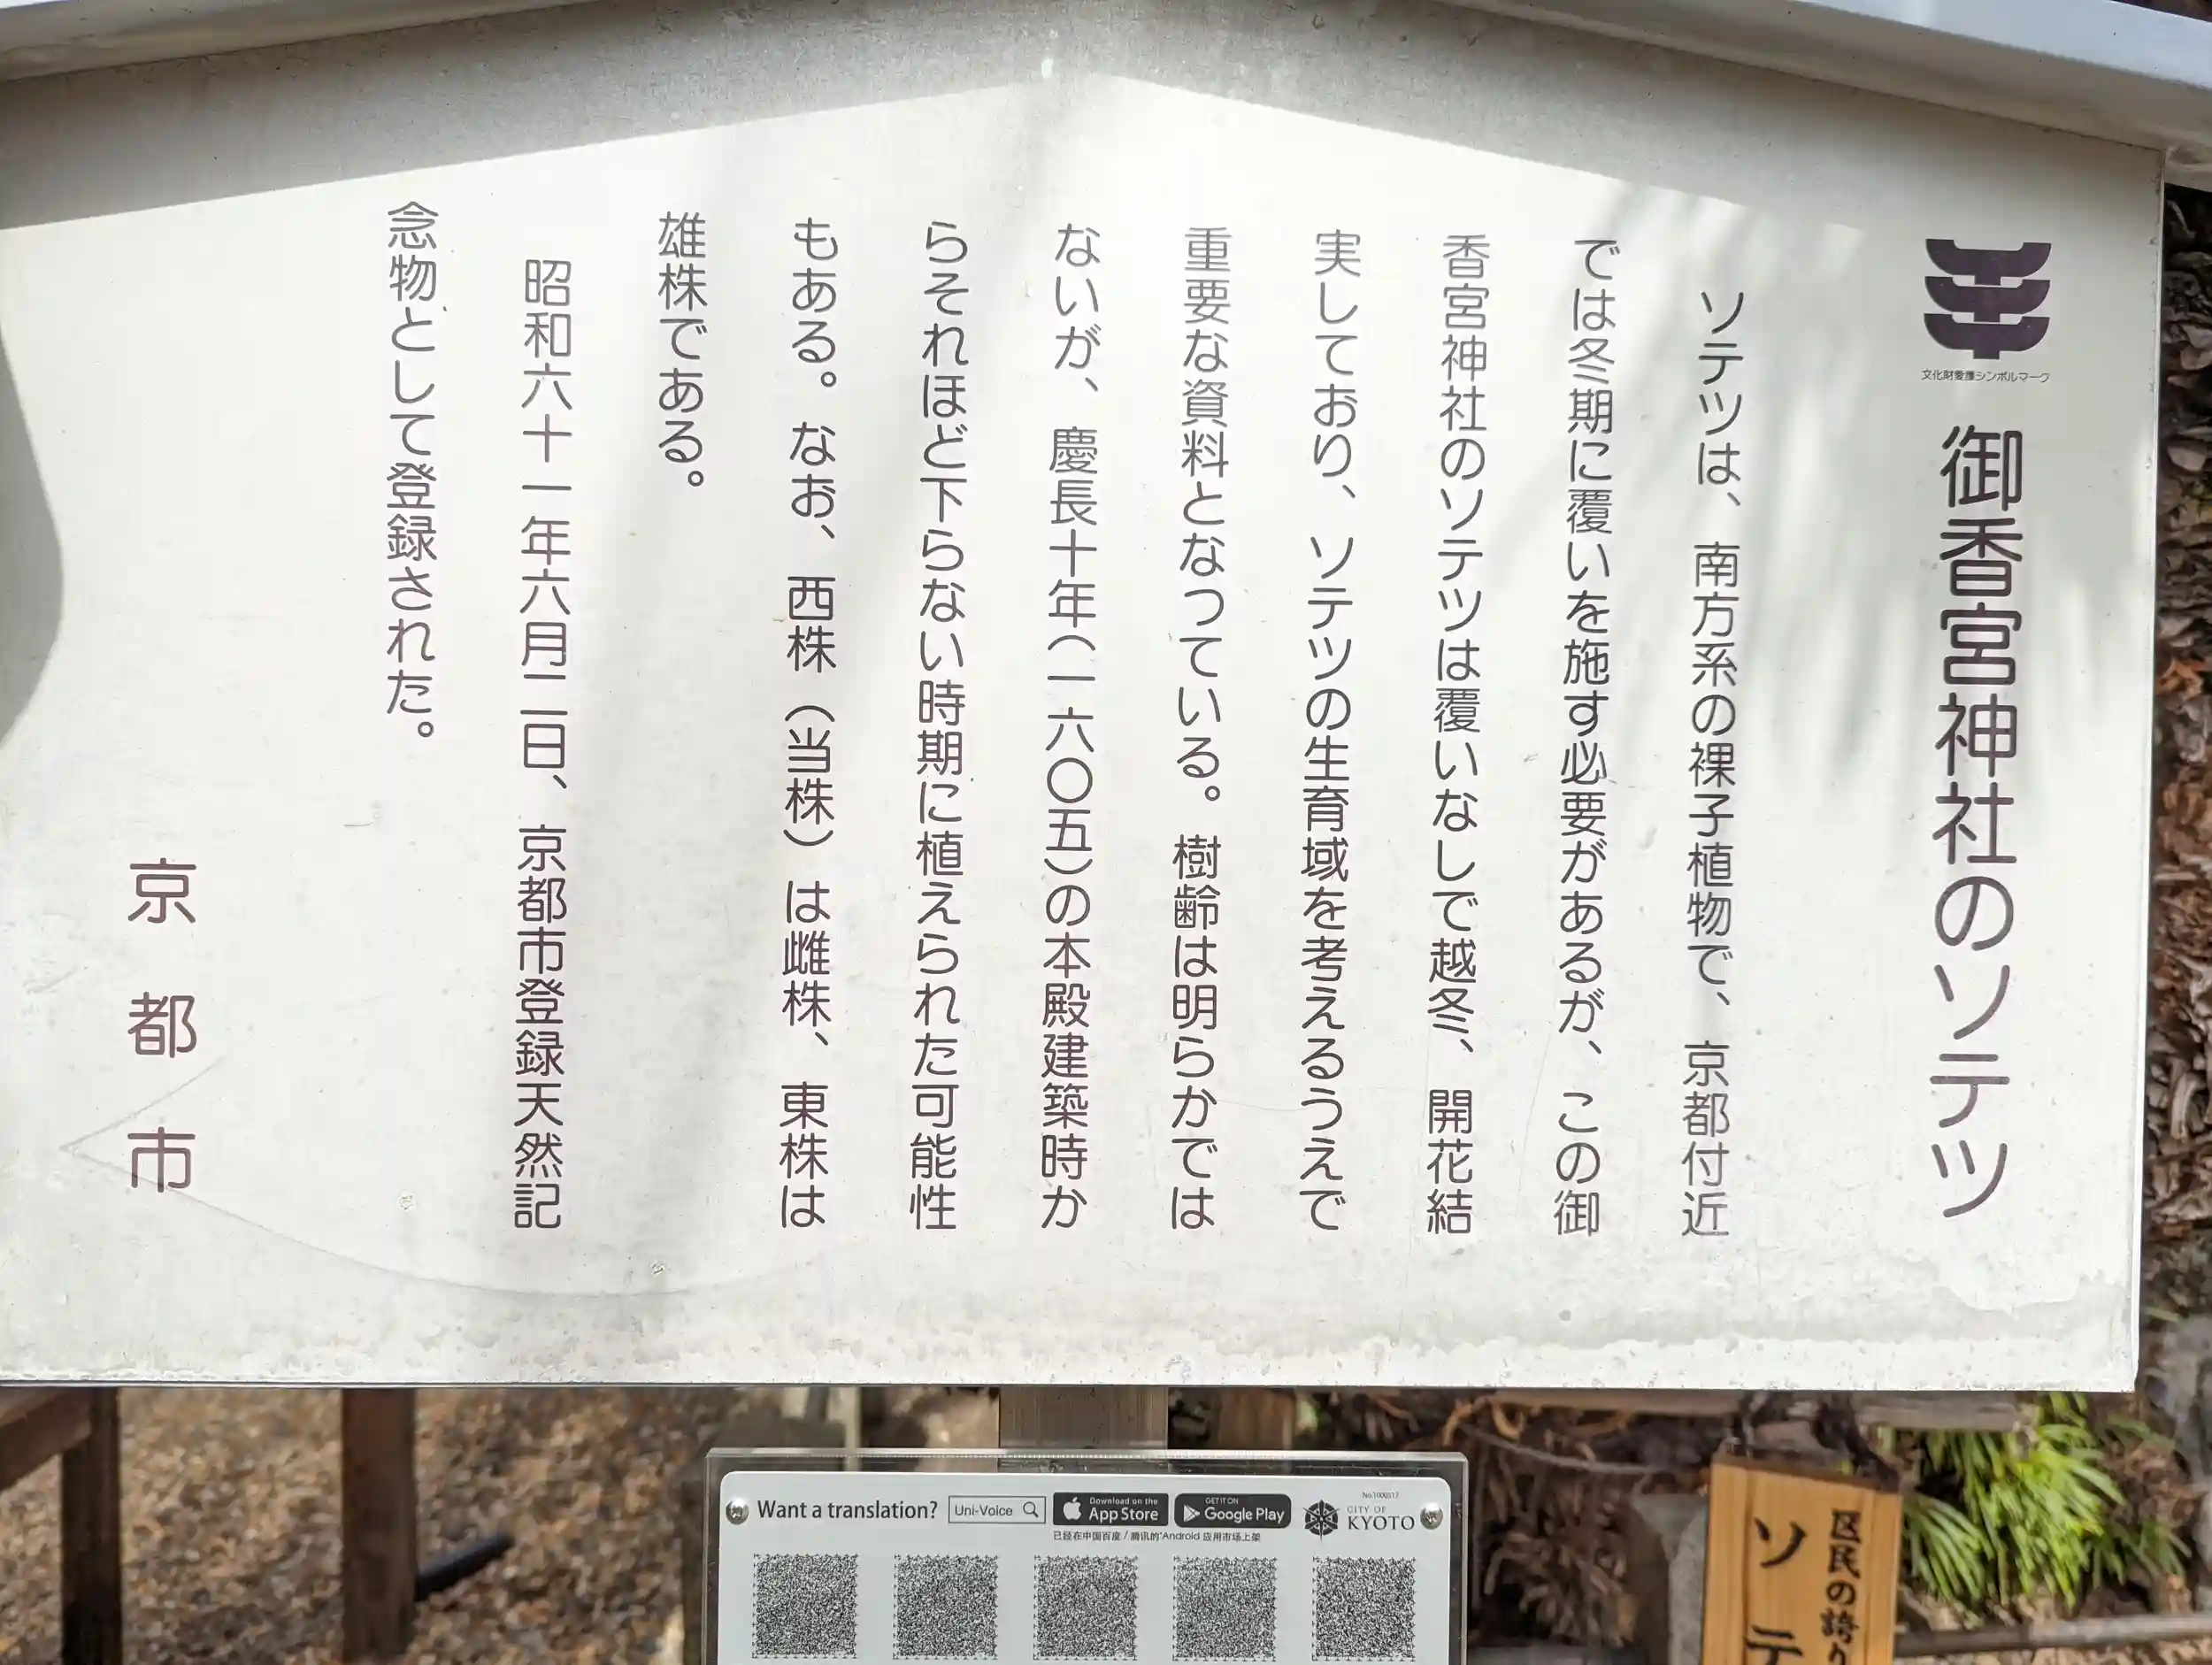 文化財愛護シンボルマーク
御香宮神社のソテツ
ソテツは、南方系の裸子植物で、京都付近
では冬期に覆いを施す必要があるが、この御
香宮神社のソテツは覆いなしで越冬、開花結
実しており、ソテツの生育域を考えるうえで
重要な資料となつている。樹齢は明らかでは
ないが、慶長十年(一六〇五)の本殿建築時か
らそれほど下らない時期に植えられた可能性
もある。なお、西株（当株）は雌株、東株は
雄株である。
昭和六十一年六月二日、京都市登録天然記
念物として登録された。
京都市
Want a translation?
Uni-Voice
Download on the
App Store
GET IT ON
Google Play
已经在中国百度 / 腾讯的"Android 应用市场上架
No.1000317
CITY OF
KYOTO
区民の誇り
ソテ